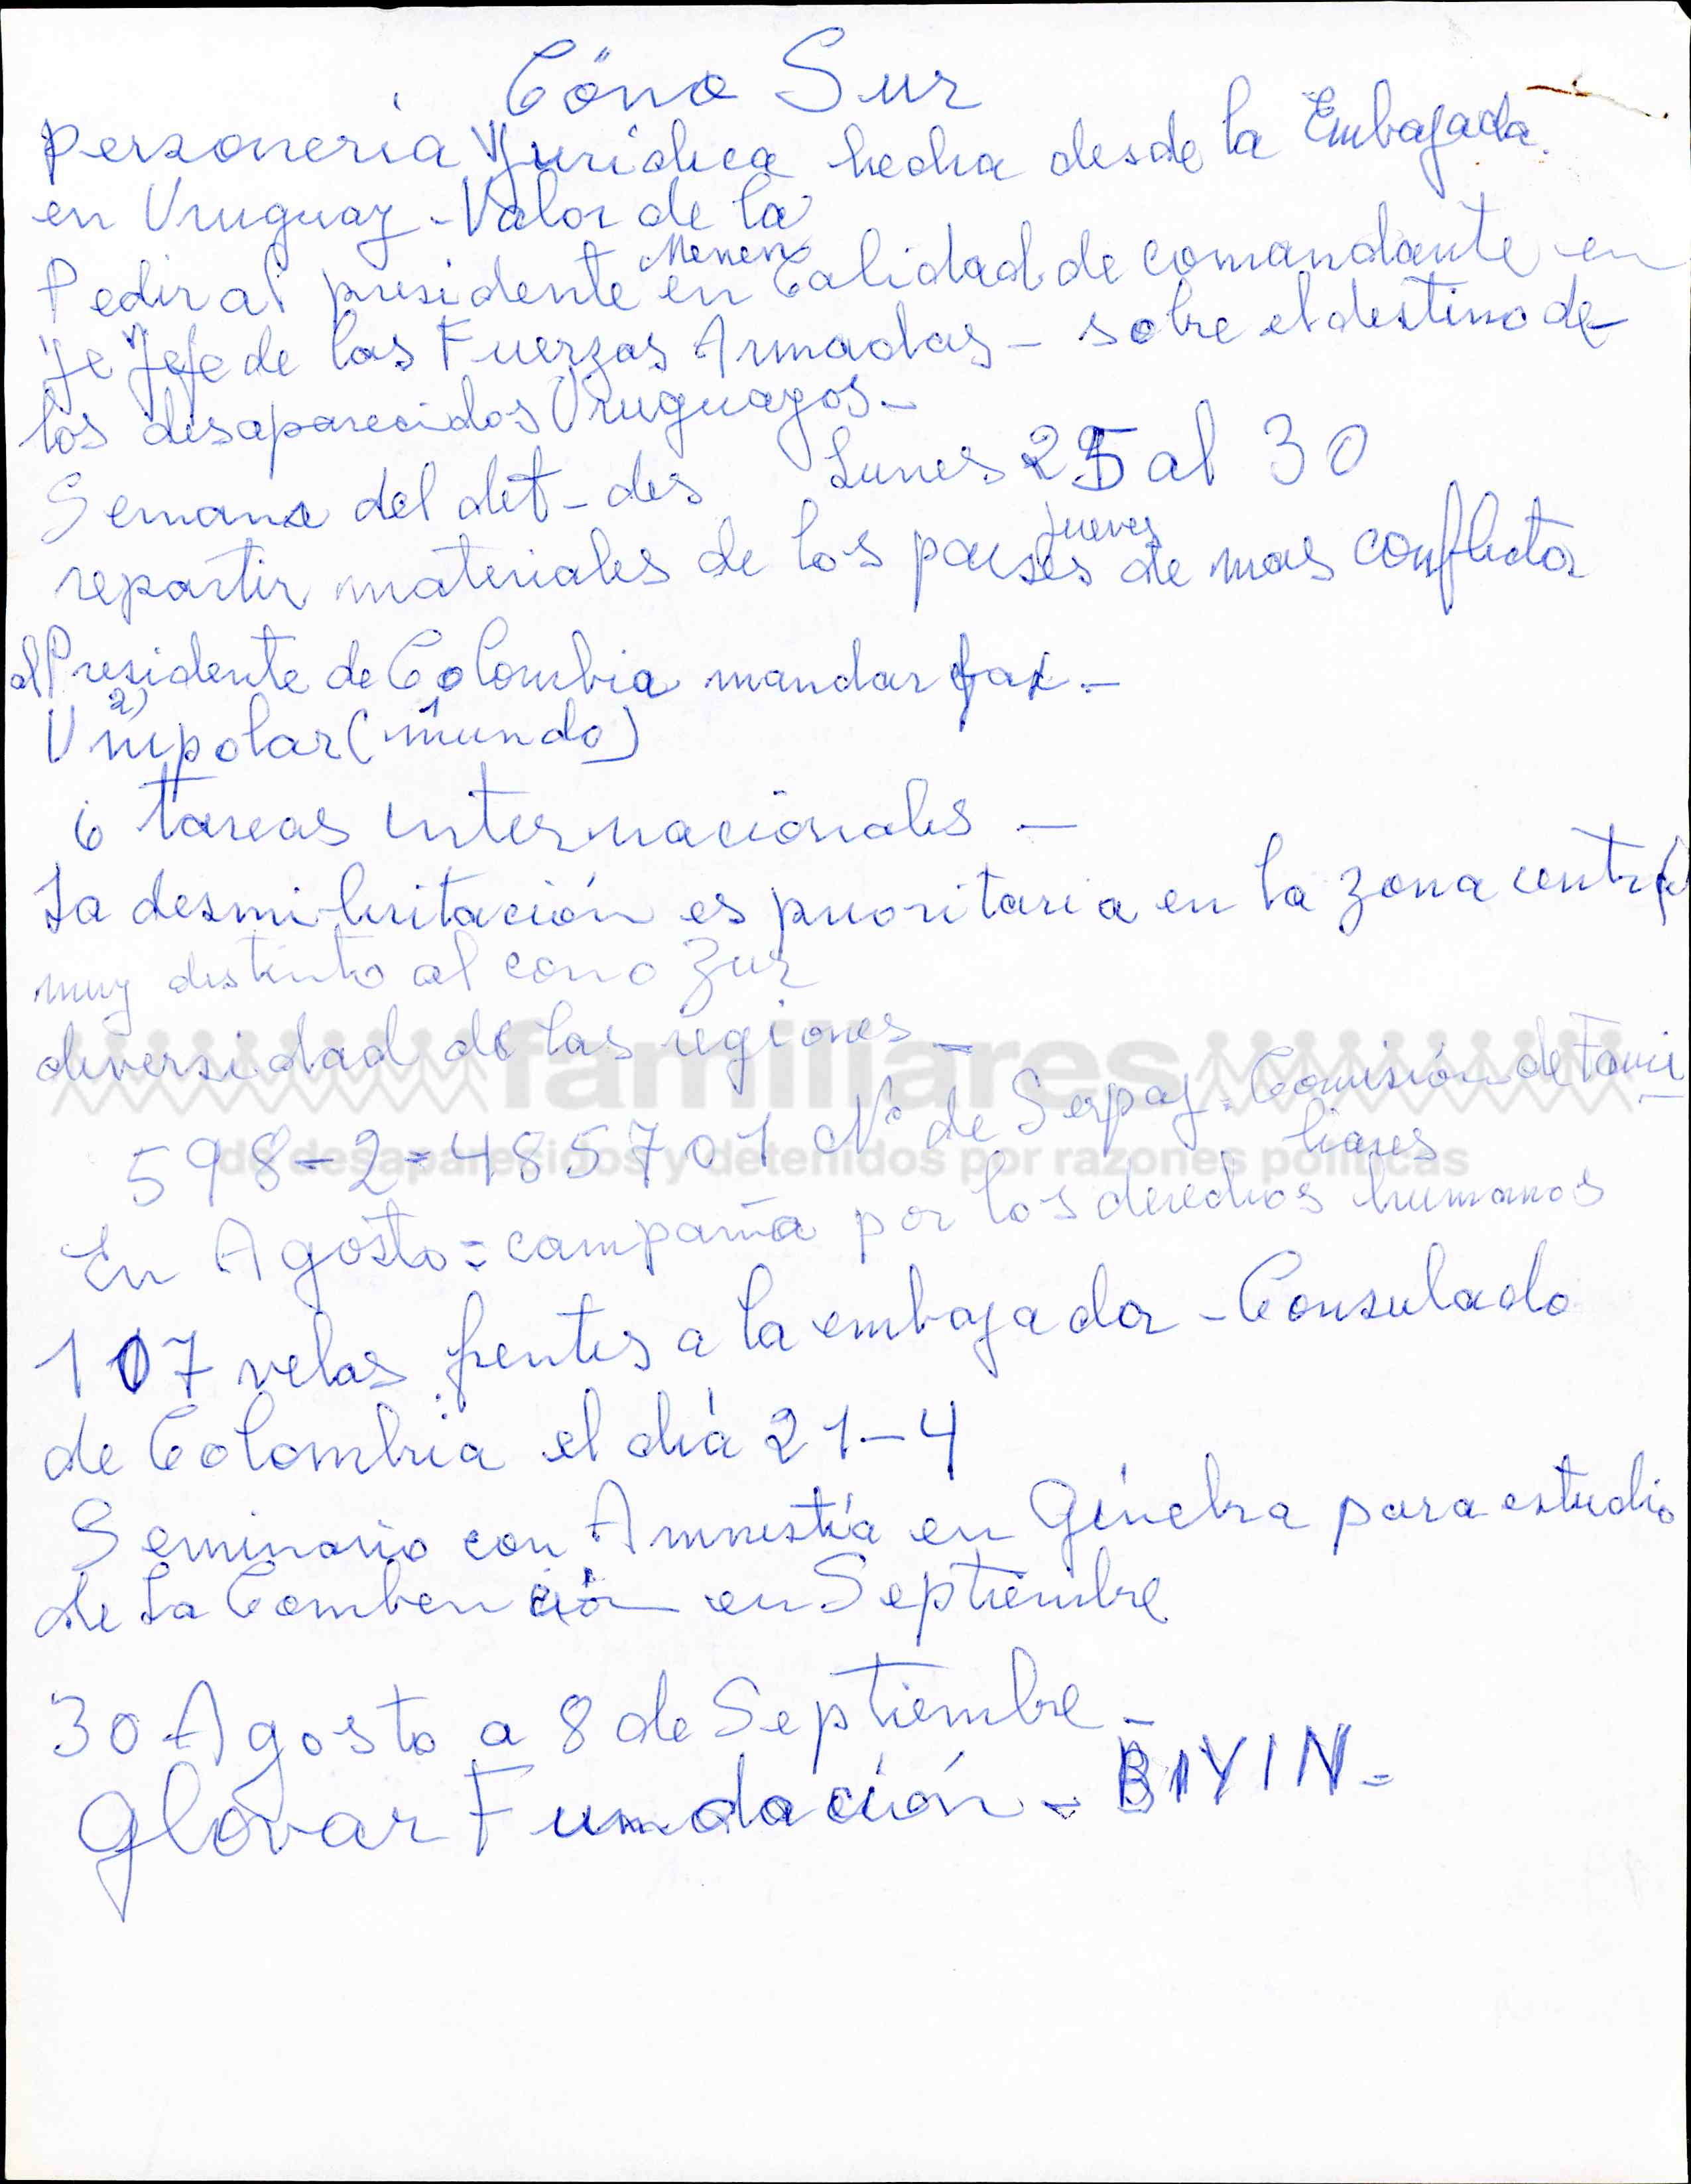 Cono Sur
personería Jurídica hecha desde la Embajada.
en Uruguay - Valor de la
Menen
Pedir al presidente en Calidad de comandante en
Je Jefe de las Fuerzas Armadas - sobre el destino de
los desaparecidos Uruguayos -
Semana del det - des Lunes 25 al 30
jueves
repartir materiales de los paises de mas conflicto
al Presidente de Colombia mandar fax -
2) 1
Unipolar (mundo)
6 tareas internacionales -
La desmilitación es prioritaria en la zona central
muy distinto al cono Zur
diversidad de las regiones -
familiares
598-2-485701 Nº de Serpaj = Comisión de Fami-
liares
de desaparecidos y detenidos por razones políticas
En Agosto = campaña por los derechos humanos
107 velas frentes a la embajada - Consulado
de Colombia el día 21-4
Seminario con Amnistía en Ginebra para estudio
de La Combención en Septiembre
30 Agosto a 8 de Septiembre -
Glovar Fundación -